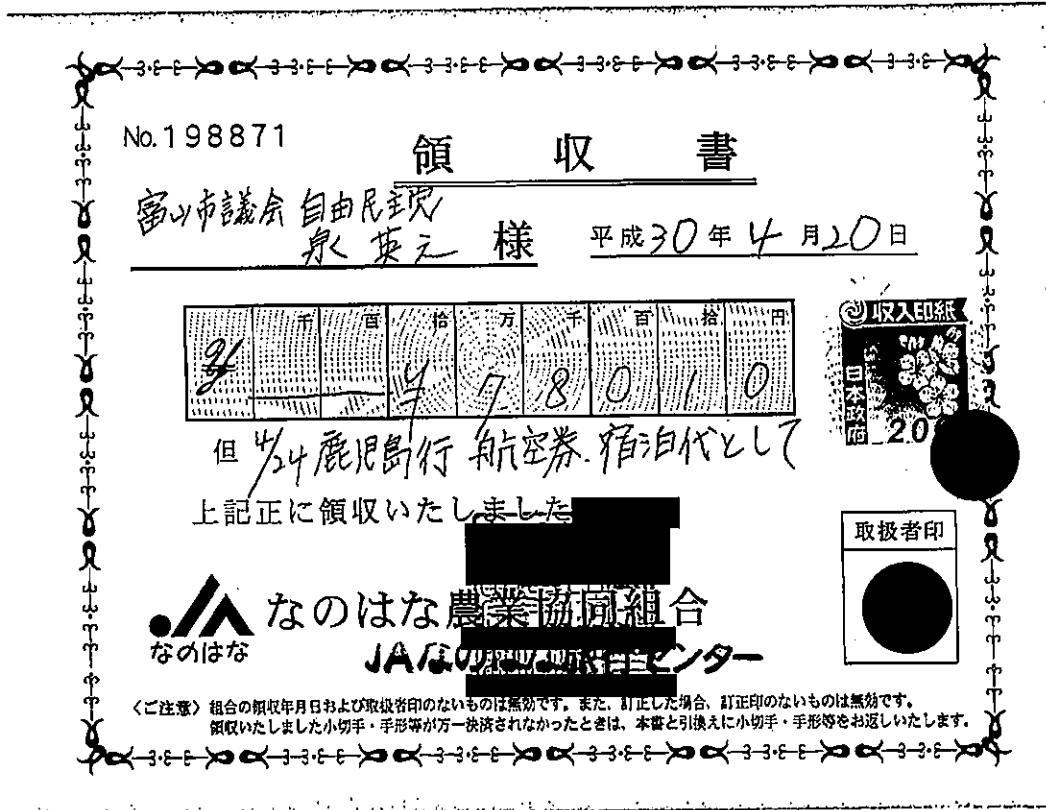 No.198871
領収書
富山市議会 自由民主党
泉 英之 様
平成30年4月20日
千 百 拾 万 千 百 拾 円
¥ 4 7 8 0 1 0
収入印紙
日本政府
200
但 4/24 鹿児島行 航空券.宿泊代として
上記正に領収いたしました
取扱者印
なのはな
なのはな農業協同組合
JAなのはな旅行センター
〈ご注意〉組合の領収年月日および取扱者印のないものは無効です。また、訂正した場合、訂正印のないものは無効です。
領収いたしました小切手・手形等が万一決済されなかったときは、本書と引換えに小切手・手形等をお返しいたします。